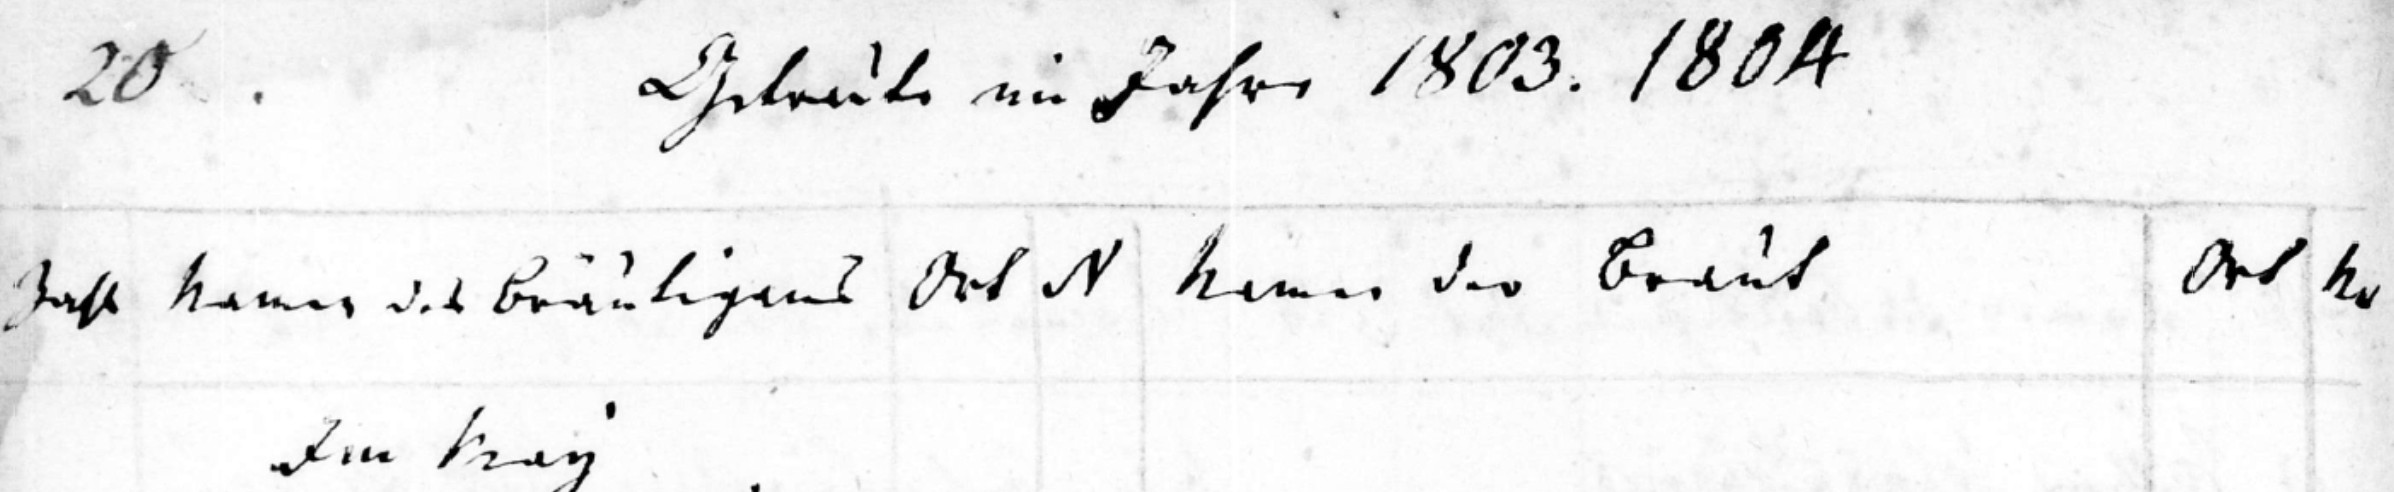 20.
Getraute im Jahre 1803. 1804
Zahl Namen des Bräutigams Ort N Namen der Braut Ort No
Im May